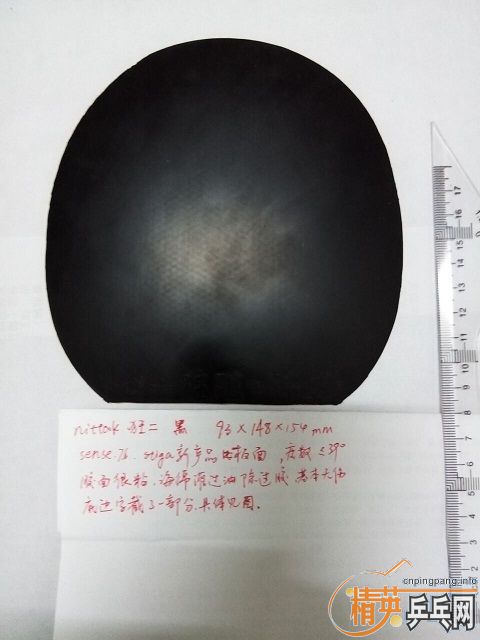 nittak 狂二 黑 93×148×154 mm
sense.7.6. stiga新产品 拍面,度数≤39°
胶面很粘.海绵灌过油除过胶 基本无伤
底边字截了一部分.具体见图.
17
16
15
14
13
12
11
10
9
8
7
6
5
4
3
2
cnpingpang.info
精英乒乓网